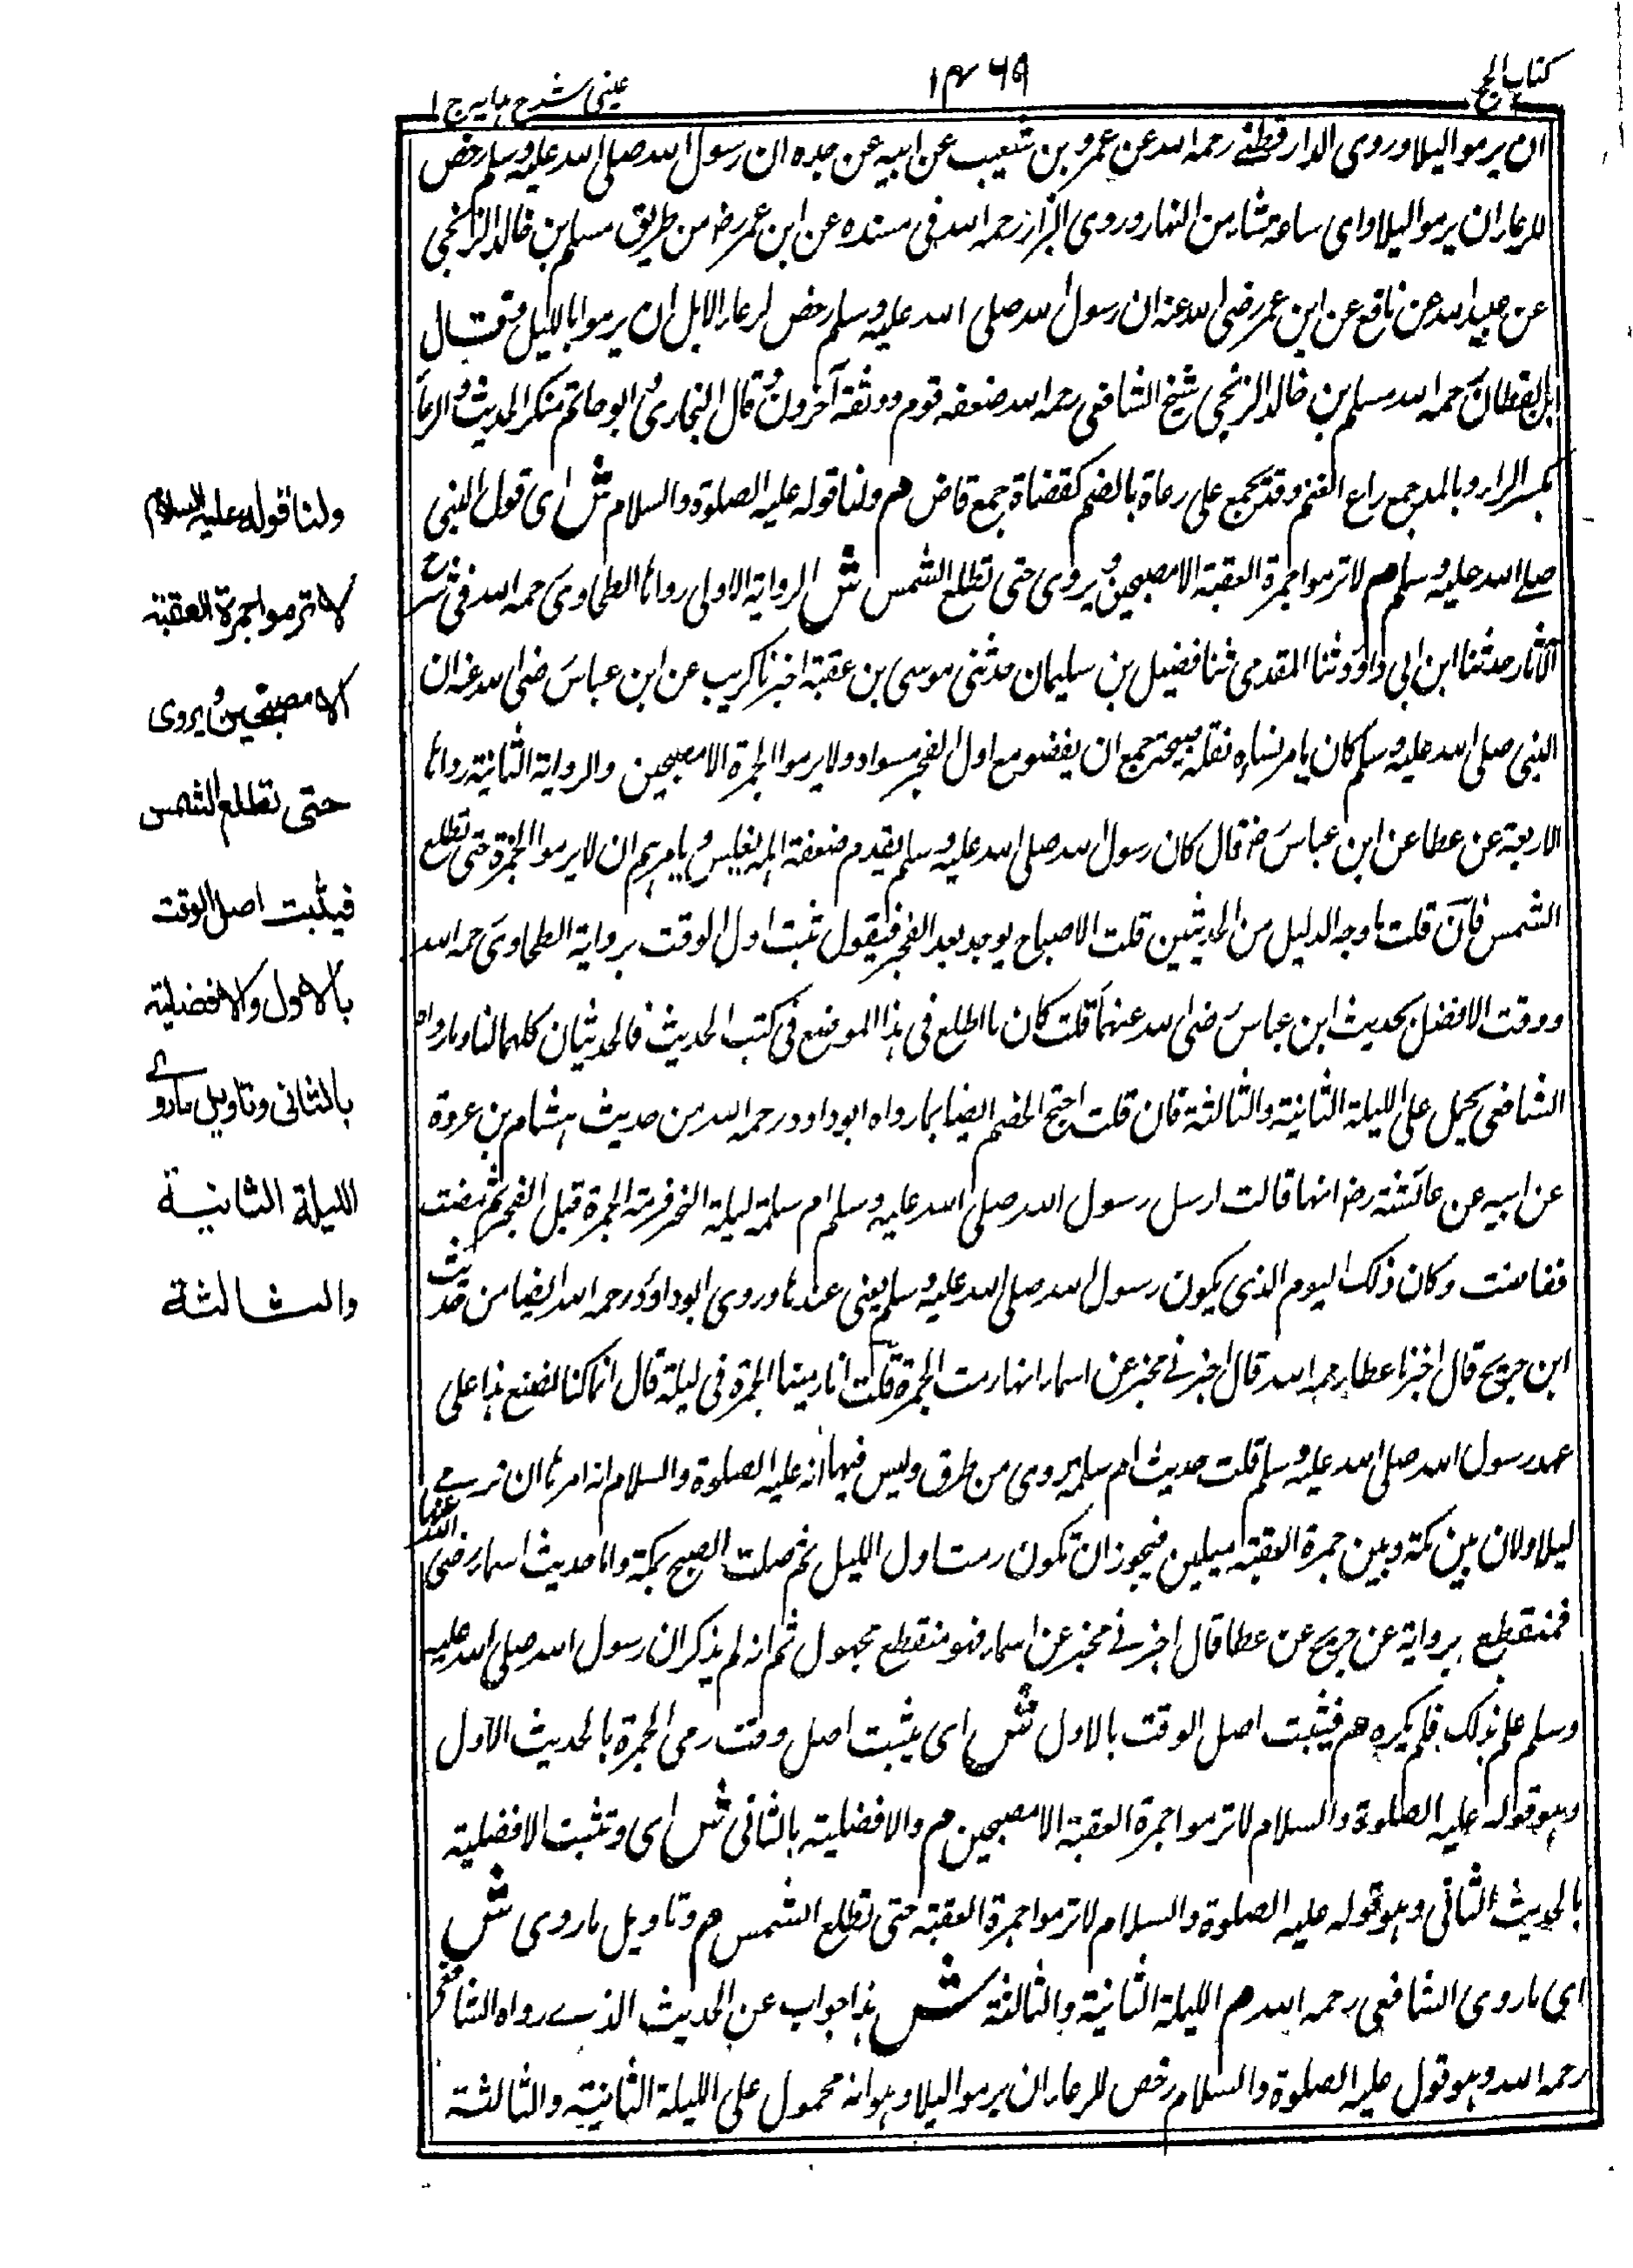 كتاب الحج
١٤٦٩
عينى شرح هدايه ج ١
ان يرموا ليلا وروى الدارقطنے رحمه الله عن عمرو بن شعيب عن ابيه عن جده ان رسول الله صلى الله عليه وسلم رخص
للرعاء ان يرموا ليلا واى ساعة شاؤا من النهار وروى البزار رحمه الله فى مسنده عن ابن عمر رض من طريق مسلم بن خالد الزنجى
عن عبيد الله عن نافع عن ابن عمر رضى الله عنه ان رسول الله صلى الله عليه وسلم رخص لرعاء الابل ان يرموا بالليل وقال
ابن القطان رحمه الله مسلم بن خالد الزنجى شيخ الشافعى رحمه الله ضعفه قوم ووثقه آخرون وقال البخارى وابو حاتم منكر الحديث والرعاء
بكسر الراء وبالمد جمع راع الغنم وقد يجمع على رعاة بالضم كقضاة جمع قاض م ولنا قوله عليه الصلوة والسلام ش اى قول النبى
صلے الله عليه وسلم م لا ترموا جمرة العقبة الا مصبحين ويروى حتى تطلع الشمس ش الرواية الاولى رواها الطحاوى رحمه الله فى شرح
الآثار حدثنا ابن ابى داود ثنا المقدمى ثنا فضيل بن سليمان حدثنى موسى بن عقبة اخبرنا كريب عن ابن عباس رضى الله عنه ان
النبى صلى الله عليه وسلم كان يامر نساءه نقله صبيحة جمع ان يفضوا مع اول الفجر بسواد ولا يرموا الجمرة الا مصبحين والرواية الثانية رواها
الاربعة عن عطا عن ابن عباس رض قال كان رسول الله صلى الله عليه وسلم يقدم ضعفة اهله بغلس ويامرهم ان لا يرموا الجمرة حتى تطلع
الشمس فان قلت ما وجه الدليل من الحديثين قلت الاصباح يوجد بعد الفجر فيقول ثبت اول الوقت برواية الطحاوى رحمه الله
ووقت الافضل بحديث ابن عباس رضى الله عنهما قلت كان ما اطلع فى هذا الموضع فى كتب الحديث فالحديثان كلهما لنا وما رواه
الشافعى يحمل على الليلة الثانية والثالثة فان قلت احتج الخصم ايضا بما رواه ابو داود رحمه الله من حديث هشام بن عروة
عن ابيه عن عائشة رض انها قالت ارسل رسول الله صلى الله عليه وسلم ام سلمة ليلة النحر فرمة الجمرة قبل الفجر ثم مضت
فافاضت وكان ذلك اليوم الذى يكون رسول الله صلى الله عليه وسلم يعنى عندها وروى ابو داود رحمه الله ايضا من حديث
ابن جريج قال اخبرنا عطاء رحمه الله قال اخبرنے مخبر عن اسماء انها رمت الجمرة قلت انا رمينا الجمرة فى ليلة قال انا كنا نصنع هذا على
عهد رسول الله صلى الله عليه وسلم قلت حديث ام سلمة يروى من طرق وليس فيها انه عليه الصلوة والسلام انه امرها ان ترمے
ليلا ولان بين مكة وبين جمرة العقبة ميلين فيجوز ان تكون رمت اول الليل ثم صلت الصبح بمكة واما حديث اسماء رضى الله عنها
فمنقطع برواية عن جريج عن عطا قال اخبرنے مخبر عن اسماء فهو منقطع مجهول ثم انه لم يذكر ان رسول الله صلى الله عليه
وسلم علم بذلك فلم يكره م فيثبت اصل الوقت بالاول ش اى يثبت اصل وقت رمى الجمرة بالحديث الاول
وهو قوله عليه الصلوة والسلام لا ترموا جمرة العقبة الا مصبحين م والافضلية بالثانى ش اى وتثبت الافضلية
بالحديث الثانى وهو قوله عليه الصلوة والسلام لا ترموا جمرة العقبة حتى تطلع الشمس م وتاويل ما روى ش
اى ما روى الشافعى رحمه الله م الليلة الثانية والثالثة ش هذا جواب عن الحديث الذے رواه الشافعى
رحمه الله وهو قول عليه الصلوة والسلام رخص للرعاء ان يرموا ليلا وهو انه محمول على الليلة الثانية والثالثة
ولنا قوله عليه السلام
لا ترموا جمرة العقبة
الا مصبحين ويروى
حتى تطلع الشمس
فيثبت اصل الوقت
بالاول والافضلية
بالثانى وتاويل ماروے
الليلة الثانية
والثالثة